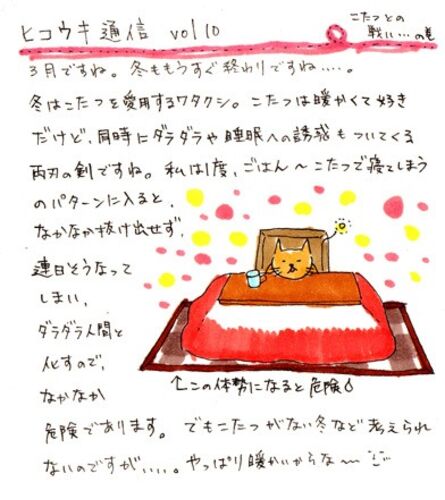 ヒコウキ通信 vol 10
こたつとの
戦い…の巻
3月ですね。冬ももうすぐ終わりですね….。
冬はこたつを愛用するワタクシ。こたつは暖かくて好き
だけど、同時にダラダラや睡眠への誘惑もついてくる
両刃の剣ですね。私は1度、ごはん〜こたつで寝てしまう
のパターンに入ると、
なかなか抜け出せず、
連日そうなって
しまい、
ダラダラ人間と
化すので、
なかなか
↑この体勢になると危険
危険であります。でもこたつがない冬など考えられ
ないのですが….。やっぱり暖かいからな〜